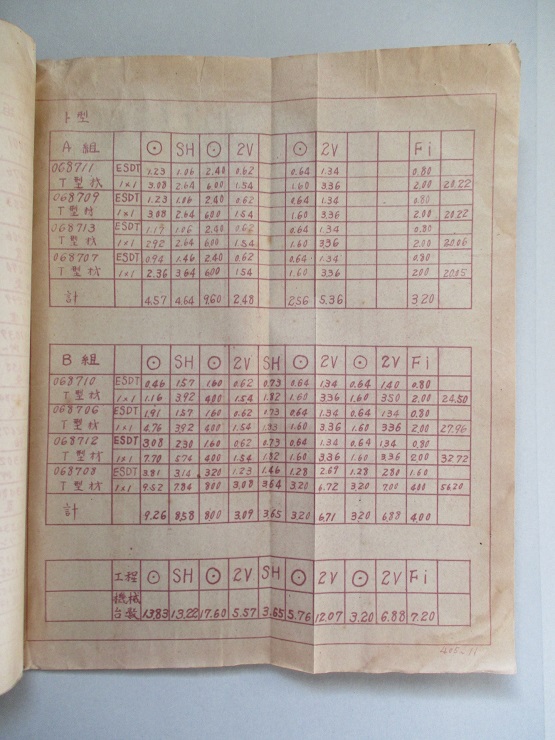 ト型
A組 ⊙ SH ⊙ 2V ⊙ 2V Fi
068711 ESDT 1.23 1.06 2.40 0.62 0.64 1.34 0.80
T型材 1×1 3.08 2.64 6.00 1.54 1.60 3.36 2.00 20.22
068709 ESDT 1.23 1.06 2.40 0.62 0.64 1.34 0.80
T型材 1×1 3.08 2.64 6.00 1.54 1.60 3.36 2.00 20.22
068713 ESDT 1.17 1.06 2.40 0.62 0.64 1.34 0.80
T型材 1×1 2.92 2.64 6.00 1.54 1.60 3.36 2.00 20.06
068707 ESDT 0.94 1.46 2.40 0.62 0.64 1.34 0.80
T型材 1×1 2.36 3.64 6.00 1.54 1.60 3.36 2.00 20.05
計 4.57 4.64 9.60 2.48 2.56 5.36 3.20
B組 ⊙ SH ⊙ 2V SH ⊙ 2V ⊙ 2V Fi
068710 ESDT 0.46 1.57 1.60 0.62 0.73 0.64 1.34 0.64 1.40 0.80
T型材 1×1 1.16 3.92 4.00 1.54 1.82 1.60 3.36 1.60 3.50 2.00 24.50
068706 ESDT 1.91 1.57 1.60 0.62 0.73 0.64 1.34 0.64 1.34 0.80
T型材 1×1 4.76 3.92 4.00 1.54 1.83 1.60 3.36 1.60 3.36 2.00 27.96
068712 ESDT 3.08 2.30 1.60 0.62 0.73 0.64 1.34 0.64 1.34 0.80
T型材 1×1 7.70 5.74 4.00 1.54 1.82 1.60 3.36 1.60 3.36 2.00 32.72
068708 ESDT 3.81 3.14 3.20 1.23 1.46 1.28 2.69 1.28 2.80 1.60
T型材 1×1 9.52 7.84 8.00 3.08 3.64 3.20 6.72 3.20 7.00 4.00 56.20
計 9.26 8.58 8.00 3.09 3.65 3.20 6.71 3.20 6.88 4.00
工程 ⊙ SH ⊙ 2V SH ⊙ 2V ⊙ 2V Fi
機械
台数 13.83 13.22 17.60 5.57 3.65 5.76 12.07 3.20 6.88 7.20